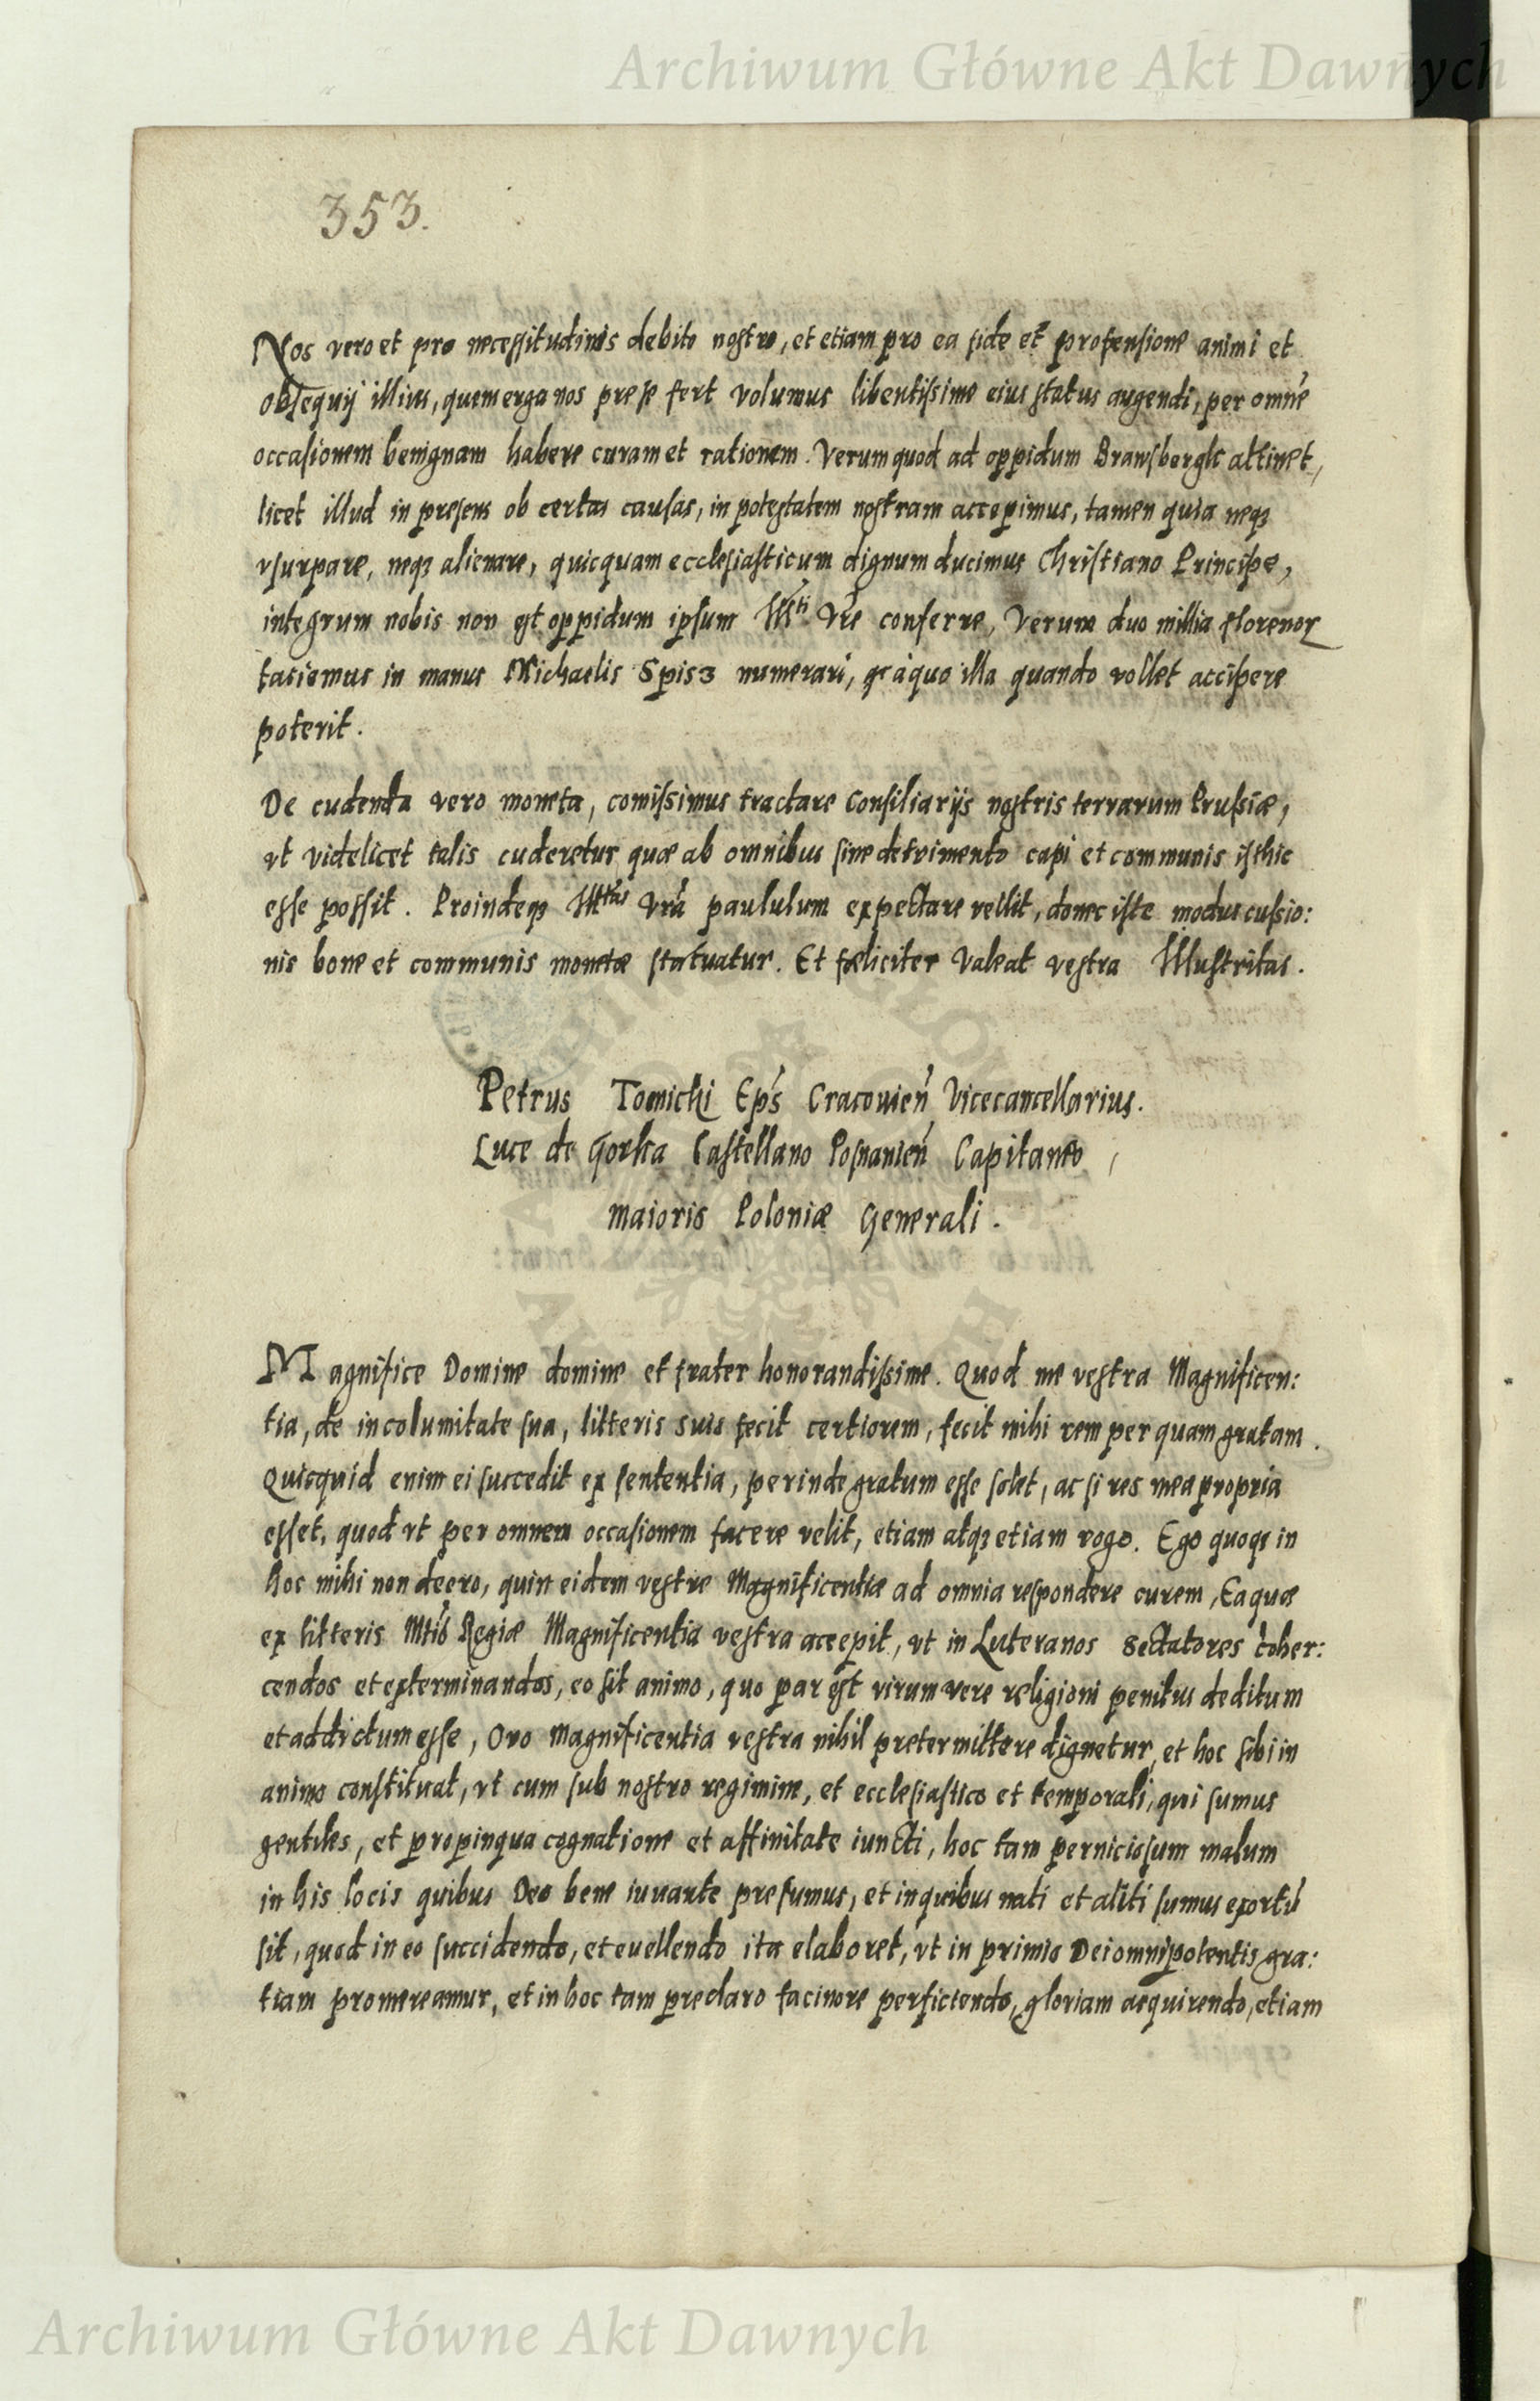 Archiwum Główne Akt Dawnych
353.
Nos vero et pro necessitudinis debito nostro, et etiam pro ea fide et profensione animi et
obsequij illius, quem erga nos prese fert volumus libentissime eius status augendi, per omnē
occasionem benignam habere curam et rationem. Verum quod ad oppidum Brawsbergk attinet,
licet illud in presens ob certas causas, in potestatem nostram accepimus, tamen quia neqȝ
vsurpare, neqȝ alienare, quicquam ecclesiasticum dignum ducimus Christiano Principe,
integrum nobis non est oppidum ipsum Illti Vre conferre, Verum duo millia florenor
faciemus in manus Michaelis Spisz numerari, a quo illa quando vollet accipere
poterit.
De cudenda vero moneta, comissimus tractare Consiliarijs nostris terrarum Prussiæ,
vt videlicet talis cuderetur quæ ab omnibus sine detrimento capi et communis isthic
esse possit. Proindeqȝ Illtas Vra paululum expectare vellit, donec iste modus cussio:
nis bone et communis monetæ statuatur. Et fæliciter Valeat vestra Illustritas.
Petrus Tomicki Eps Cracouien Vicecancellarius.
Luce de Gorka Castellano Posnanien Capitaneo,
maioris Poloniæ Generali.
Magnifice Domine domine et frater honorandissime. Quod me vestra Magnificen:
tia, de incolumitate sua, litteris suis fecit certiorem, fecit mihi rem per quam gratam.
Quicquid enim ei succedit ex sententia, perinde gratum esse solet, ac si res mea propria
esset, quod vt per omnem occasionem facere velit, etiam atqȝ etiam rogo. Ego quoqȝ in
hoc mihi non deero, quin eidem vestre Magnificentiæ ad omnia respondere curem, Ea quæ
ex litteris Mtis Regiæ Magnificentia vestra accepit, vt in Luteranos Sectatores coher:
cendos et exterminandos, eo sit animo, quo par est virum vere religioni penitus deditum
et addictum esse, Oro Magnificentia vestra nihil pretermittere dignetur, et hoc sibi in
animo constituat, vt cum sub nostro regimine, et ecclesiastico et temporali, qui sumus
gentiles, et propinqua cognatione et affinitate iuncti, hoc tam perniciosum malum
in his locis quibus Deo bene iuuante presumus, et in quibus nati et aliti sumus exortū
sit, quod in eo succidendo, et euellendo ita elaboret, vt in primis Dei omnipotentis gra:
tiam promereamur, et in hoc tam preclaro facinore perficiendo, gloriam acquirendo, etiam
Archiwum Główne Akt Dawnych